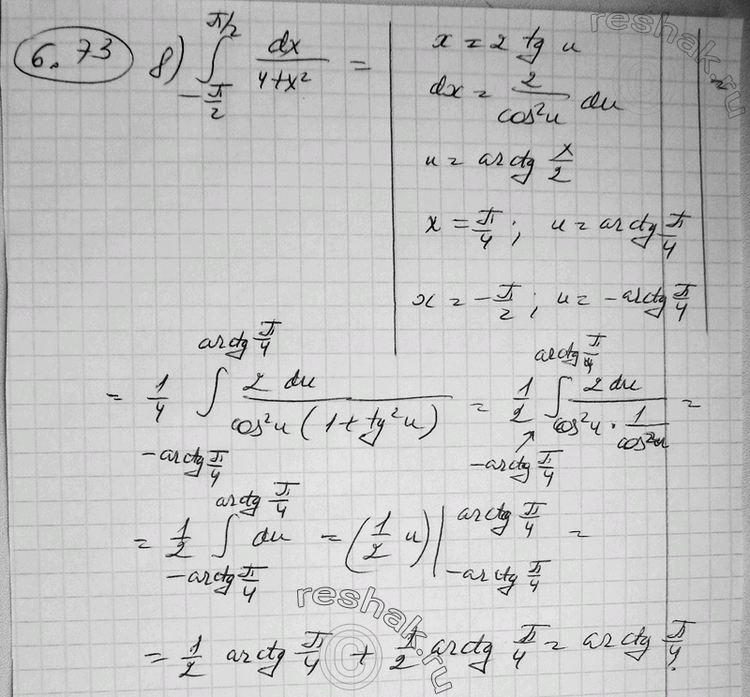 6.73 8) ∫_{-π/2}^{π/2} dx/(4+x²) = | x = 2 tg u | =
dx = 2/cos²u du
u = arctg x/2
x = π/4; u = arctg π/4
x = -π/2; u = -arctg π/4
= 1/4 ∫_{-arctg π/4}^{arctg π/4} 2 du/(cos²u (1+tg²u)) = 1/2 ∫_{-arctg π/4}^{arctg π/4} 2 du/(cos²u · 1/cos²u) =
= 1/2 ∫_{-arctg π/4}^{arctg π/4} du = (1/2 u) |_{-arctg π/4}^{arctg π/4} =
= 1/2 arctg π/4 + 1/2 arctg π/4 = arctg π/4.
reshak.ru
reshak.ru